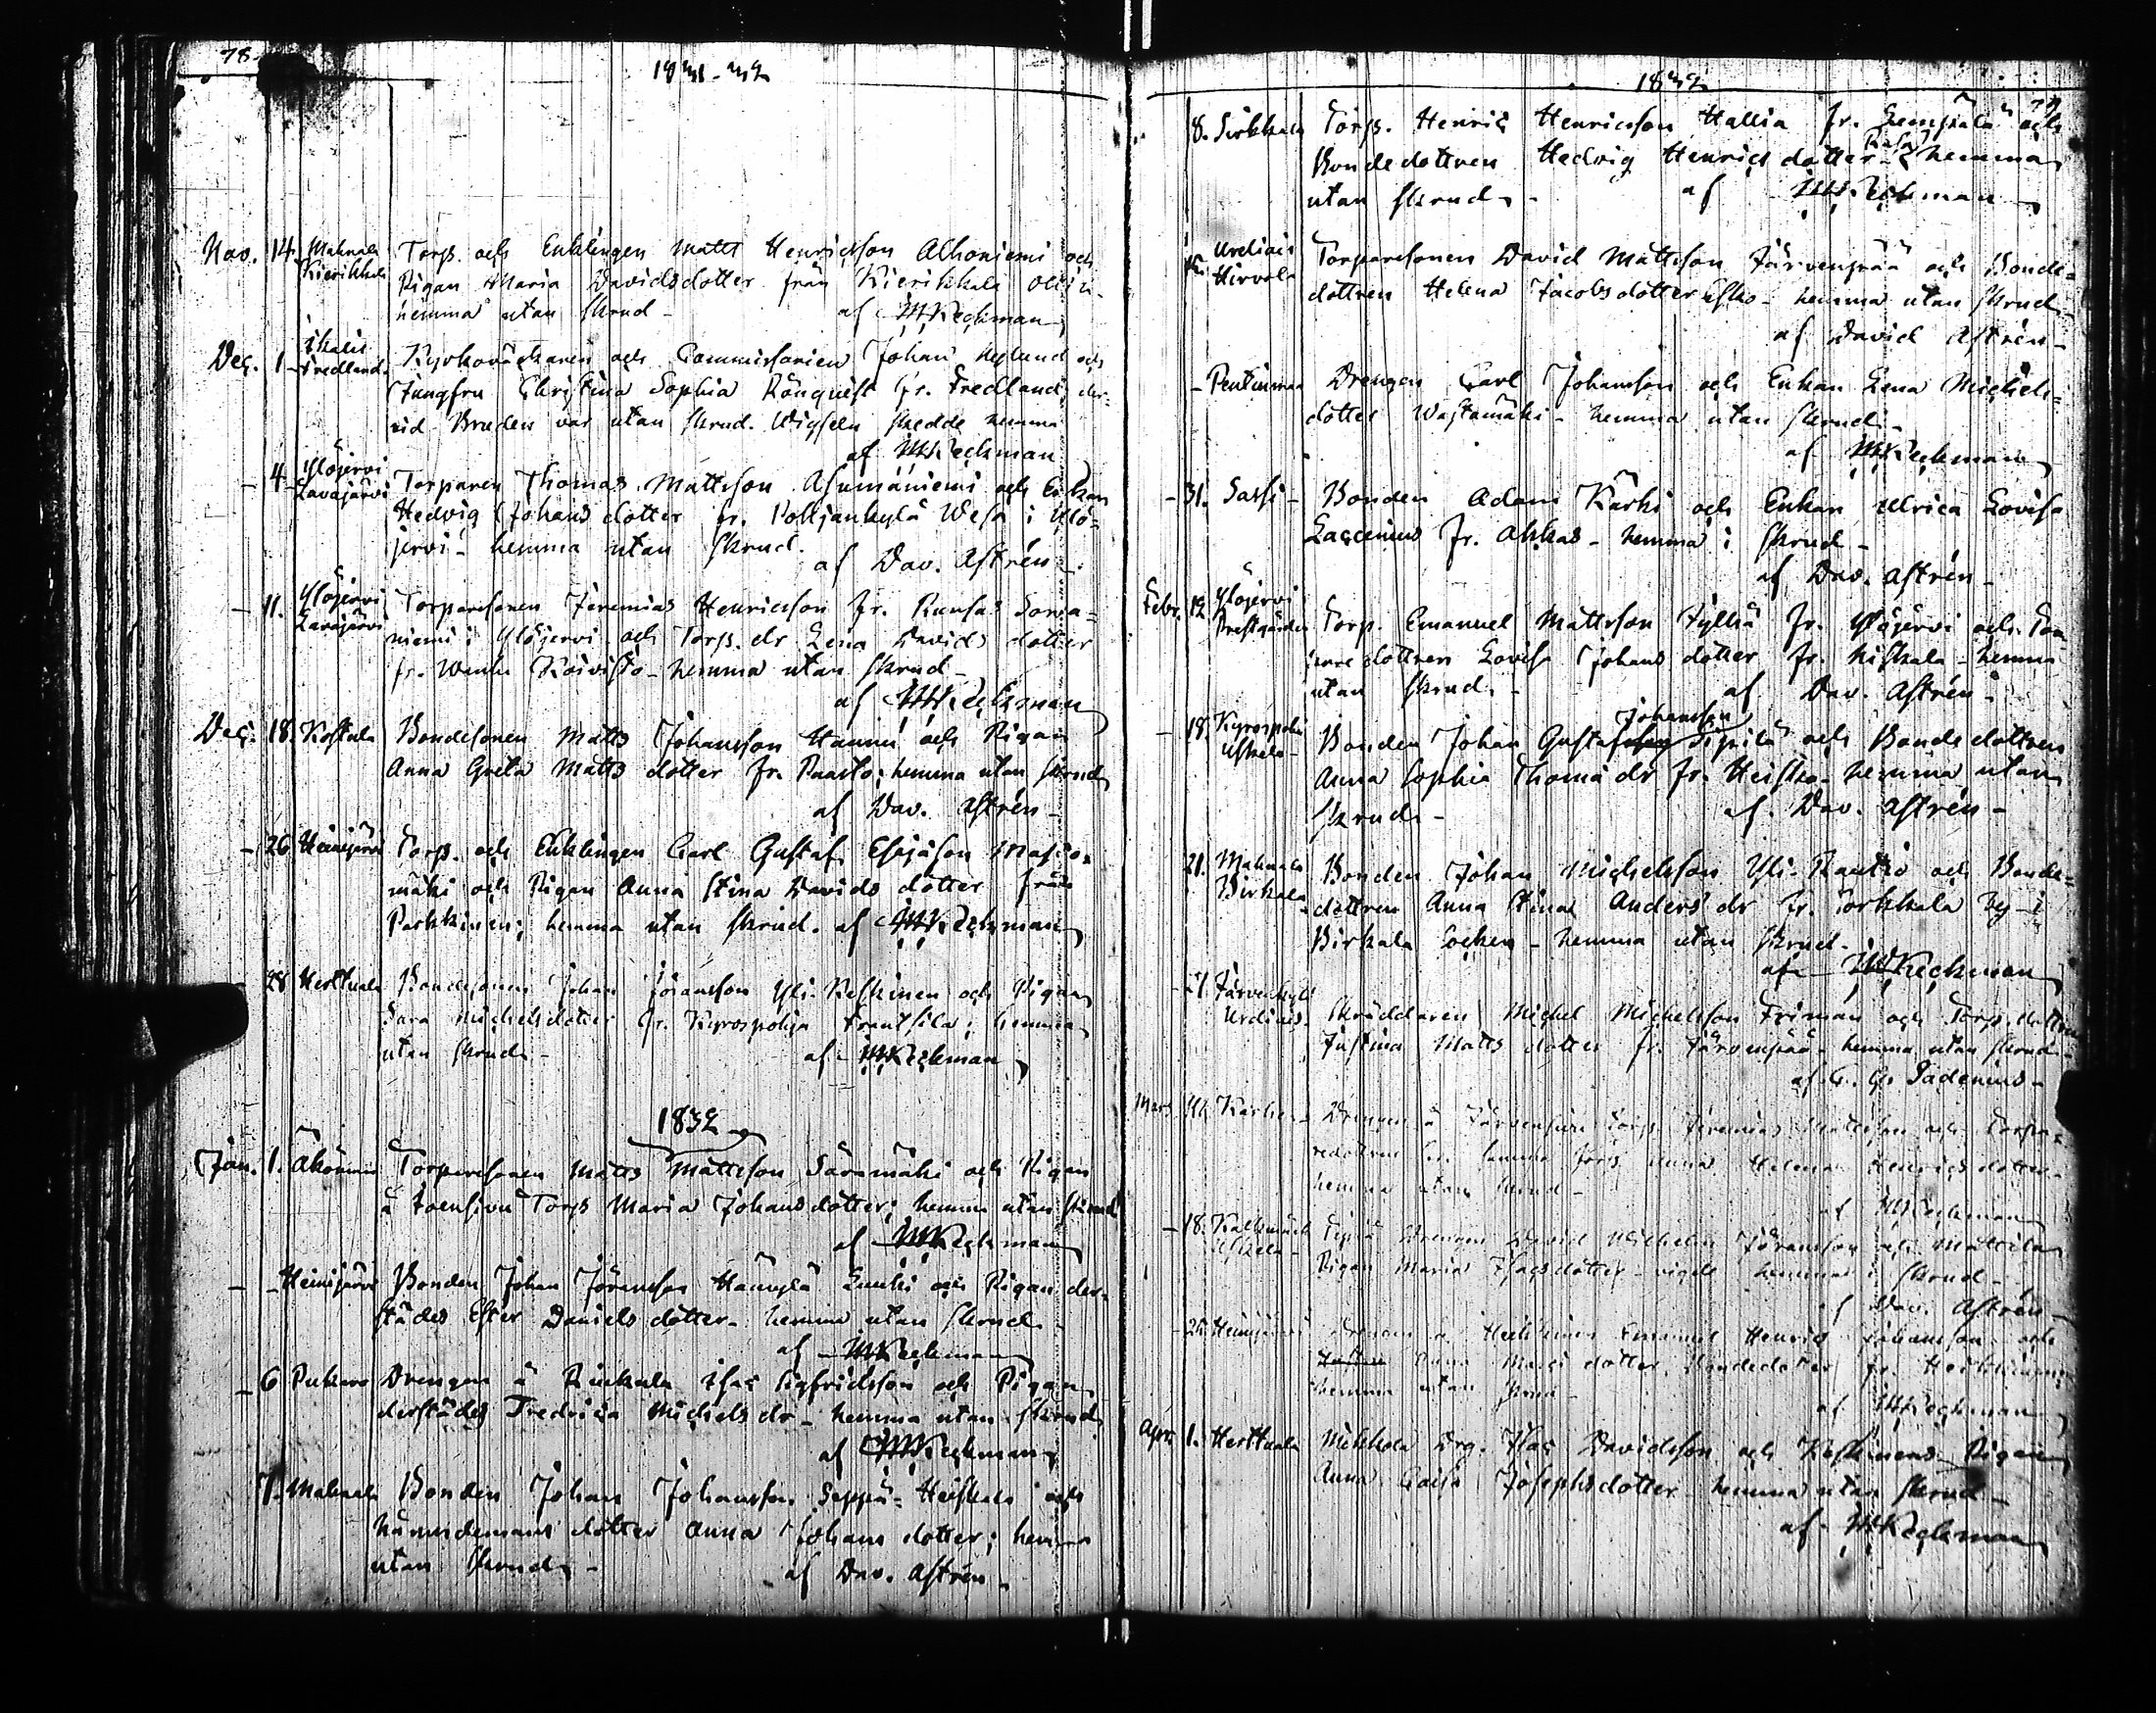 78.
1831-32
Nov. 14. Mahnala Kierikkala Torp. och Enklingen Matts Henricsson Alhoniemi och
Pigan Maria Davidsdotter från Kierikkala Ollin-
hemma utan skrud - af MKeckman
Dec. 1 Ikalis Fredland. Kyrkoväcktaren och Commissarien Johan Nylund och
Jungfru Christina Sophia Rönquist fr. Fredland, der-
vid Bruden var utan skrud. Wigseln skedde hemma
af MKeckman
- 4 Ylöjervi Lavajärvi Torparen Thomas Mattsson Asumaniemi och Enkan
Hedvig Johansdotter fr. Pohjankylä Wesa i Ylö-
jervi - hemma utan skrud.
af Dav. Astrén -
- 11. Ylöjervi Lavajärvi Torparesonen Jeremias Henricsson fr. Runsas Sorva-
niemi i Ylöjervi och Torp. dr Lena Davids dotter
fr. Wanha Koivisto - hemma utan skrud -
af MKeckman
Dec. 18. Koskula Bondesonen Matts Johansson Hannu och Pigan
Anna Greta Matts dotter fr. Paasto; hemma utan skrud
af Dav. Astrén -
- 26 Heinijärvi Torp. och Enklingen Carl Gustaf Esajason
mäki och Pigan Anna Stina Davids dotter från
Parkkinen; hemma utan skrud. af MKeckman
28 Herttuala Bondesonen Johan Jöransson Yli-Keskinen och Pigan
Sara Michelsdotter fr. Kyrospohja Frantsila; hemma
utan skrud - af MKeckman
1832
Jan. 1. Torparesonen Matts Mattsson Säramäki och Pigan
å Torp Maria Johansdotter; hemma utan skrud
af MKeckman
- - Heinijärvi Bonden Johan Jöransson Hännylä och Pigan der-
städes Ester Daniels dotter - hemma utan skrud
af MKeckman
- 6 Pukara Drengen å Isac Sigfridsson och Pigan
derstädes Fredrica Michels dr - hemma utan skrud
af MKeckman
7. Mahnala Bonden Johan Johansson Seppä-Heiskala och
Nämndemans dotter Anna Johans dotter; hemma
utan skrud - af Dav. Astrén -
1832
79
8. Sirkkala Torp. Henric Henricsson Hallia fr. Lempälä och
Bondedottren Hedvig Henrics dotter - hemma
utan skrud - af MKeckman
Urdiais Hirvola Torparesonen David Mattsson Järvenpää och Bonde-
dottren Helena Jacobsdotter Esko - hemma utan skrud -
af David Astrén -
- Pentinmaa Drengen Carl Johansson och Enkan Lena Michels-
dotter Wastamäki - hemma utan skrud -
af MKeckman
- 31. Sassi - Bonden Adam Kärki och Enkan Ulrica Lovisa
Laccenius fr. Ahkas - hemma i skrud -
af Dav. Astrén -
Febr. 12 Ylöjervi Prestgården Torp. Emanuel Mattsson Jylhä fr. Ylöjervi och Tor-
pare dottren Lovisa Johans dotter fr. Niskala - hemma
utan skrud. - af Dav. Astrén -
- 18. Kyrospohja Uskela - Bonden Johan Johansson Sipilä och Bonde dottren
Anna Sophia Thomæ dr fr. Heiska - hemma utan
skrud - af. Dav. Astrén -
21. Mahnala Birkala Bonden Johan Michelsson Yli-Rautio och Bonde-
dottren Anna Stina Anders dr fr. Sorkkala by i
Birkala Socken - hemma utan skrud -
af MKeckman
- 27. Järvenkylä Urdiais. Skräddaren Michel Michelsson Friman och Torp. dottren
Justina Matts dotter fr. Järvenpää - hemma utan skrud -
af C. G. Sadenius -
Mars Drengen å Torp Jeremias Mattsson och Torpa-
redottren Anna Helena Henricsdotter -
hemma utan skrud -
af MKeckman
- 18. Uskela - Sipilä Drengen David Michels Jöransson och Mattila
Pigan Maria Isacsdotter - vigde hemma i skrud -
af Dav. Astrén -
- 25. Heinijärvi Drengen å Heikkinen Emanuel Henric Johansson och
Anna Matts dotter, Bondedotter fr. Heikkinen;
hemma utan skrud -
af MKeckman
Apr. 1. Herttuala Mikkola Drg. Isac Davidsson och Keskinens Pigan
Anna Caisa Josephsdotter - hemma utan skrud -
af MKeckman